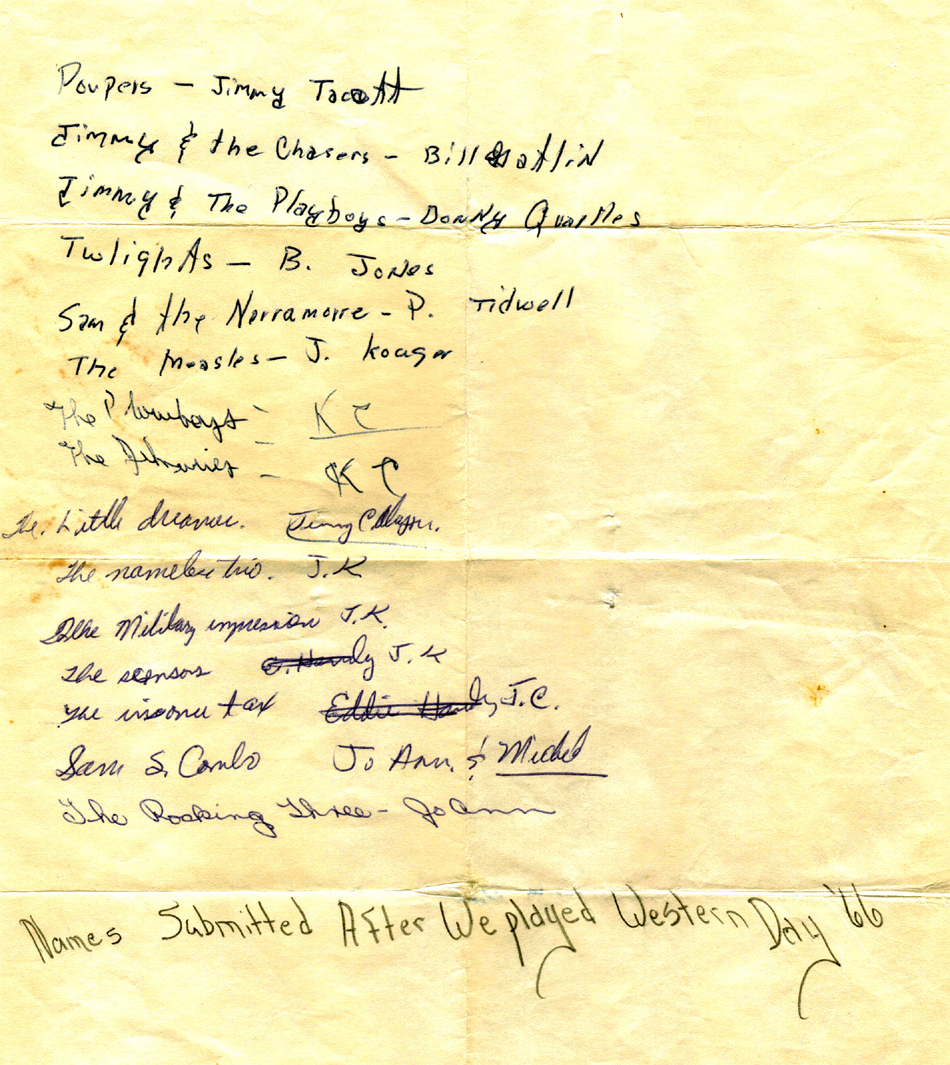 Poupers - Jimmy Tacott
Jimmy & the Chasers - Bill Gatlin
Jimmy & The Playboys - Donny Quarlles
Twlights - B. Jones
Sam & the Norramorre - P. Tidwell
The Measles - J. Koager
The Plowboys - K C
The - K C
The. Little dreamer. Jimmy C.
The nameless trio. J.K
The Military impression J.K.
The sensors J. K
The income tax Eddie Handy J.C.
Sam S. Combo Jo Ann. & Michel
The Rocking Three - JoAnn
Names Submitted After We played Western Day '66